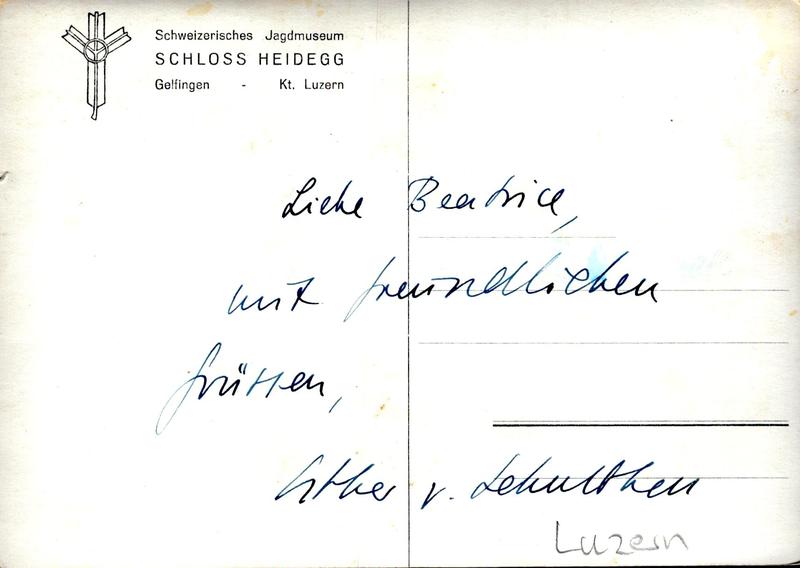 Schweizerisches Jagdmuseum
SCHLOSS HEIDEGG
Gelfingen - Kt. Luzern
Liebe Beatrice,
mit freundlichen
Grüssen,
Esther v. Schulthess
Luzern